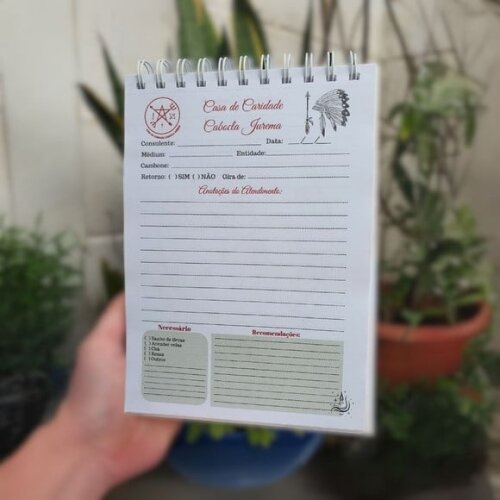 Casa de Caridade
Cabocla Jurema
Consulente: Data:
Médium: Entidade:
Cambone:
Retorno: ( )SIM ( )NÃO Gira de:
Anotações do Atendimento:
Necessário
( ) Banho de Ervas
( ) Acender velas
( ) Chá
( ) Rezas
( ) Outros
Recomendações: